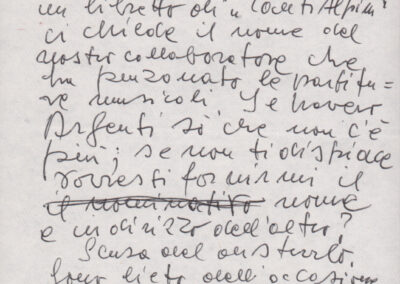 un libretto di "Canti Alpini"
ci chiede il nome del
nostro collaboratore che
ha penzonato le partitu=
re musicali. Se
Argenti so che non c'è
più; se non ti dispiace
dovresti fornirmi il
il nominativo nome
e indirizzo dell'altro?
Scusa del disturbo.
Sono lieto dell'occasione